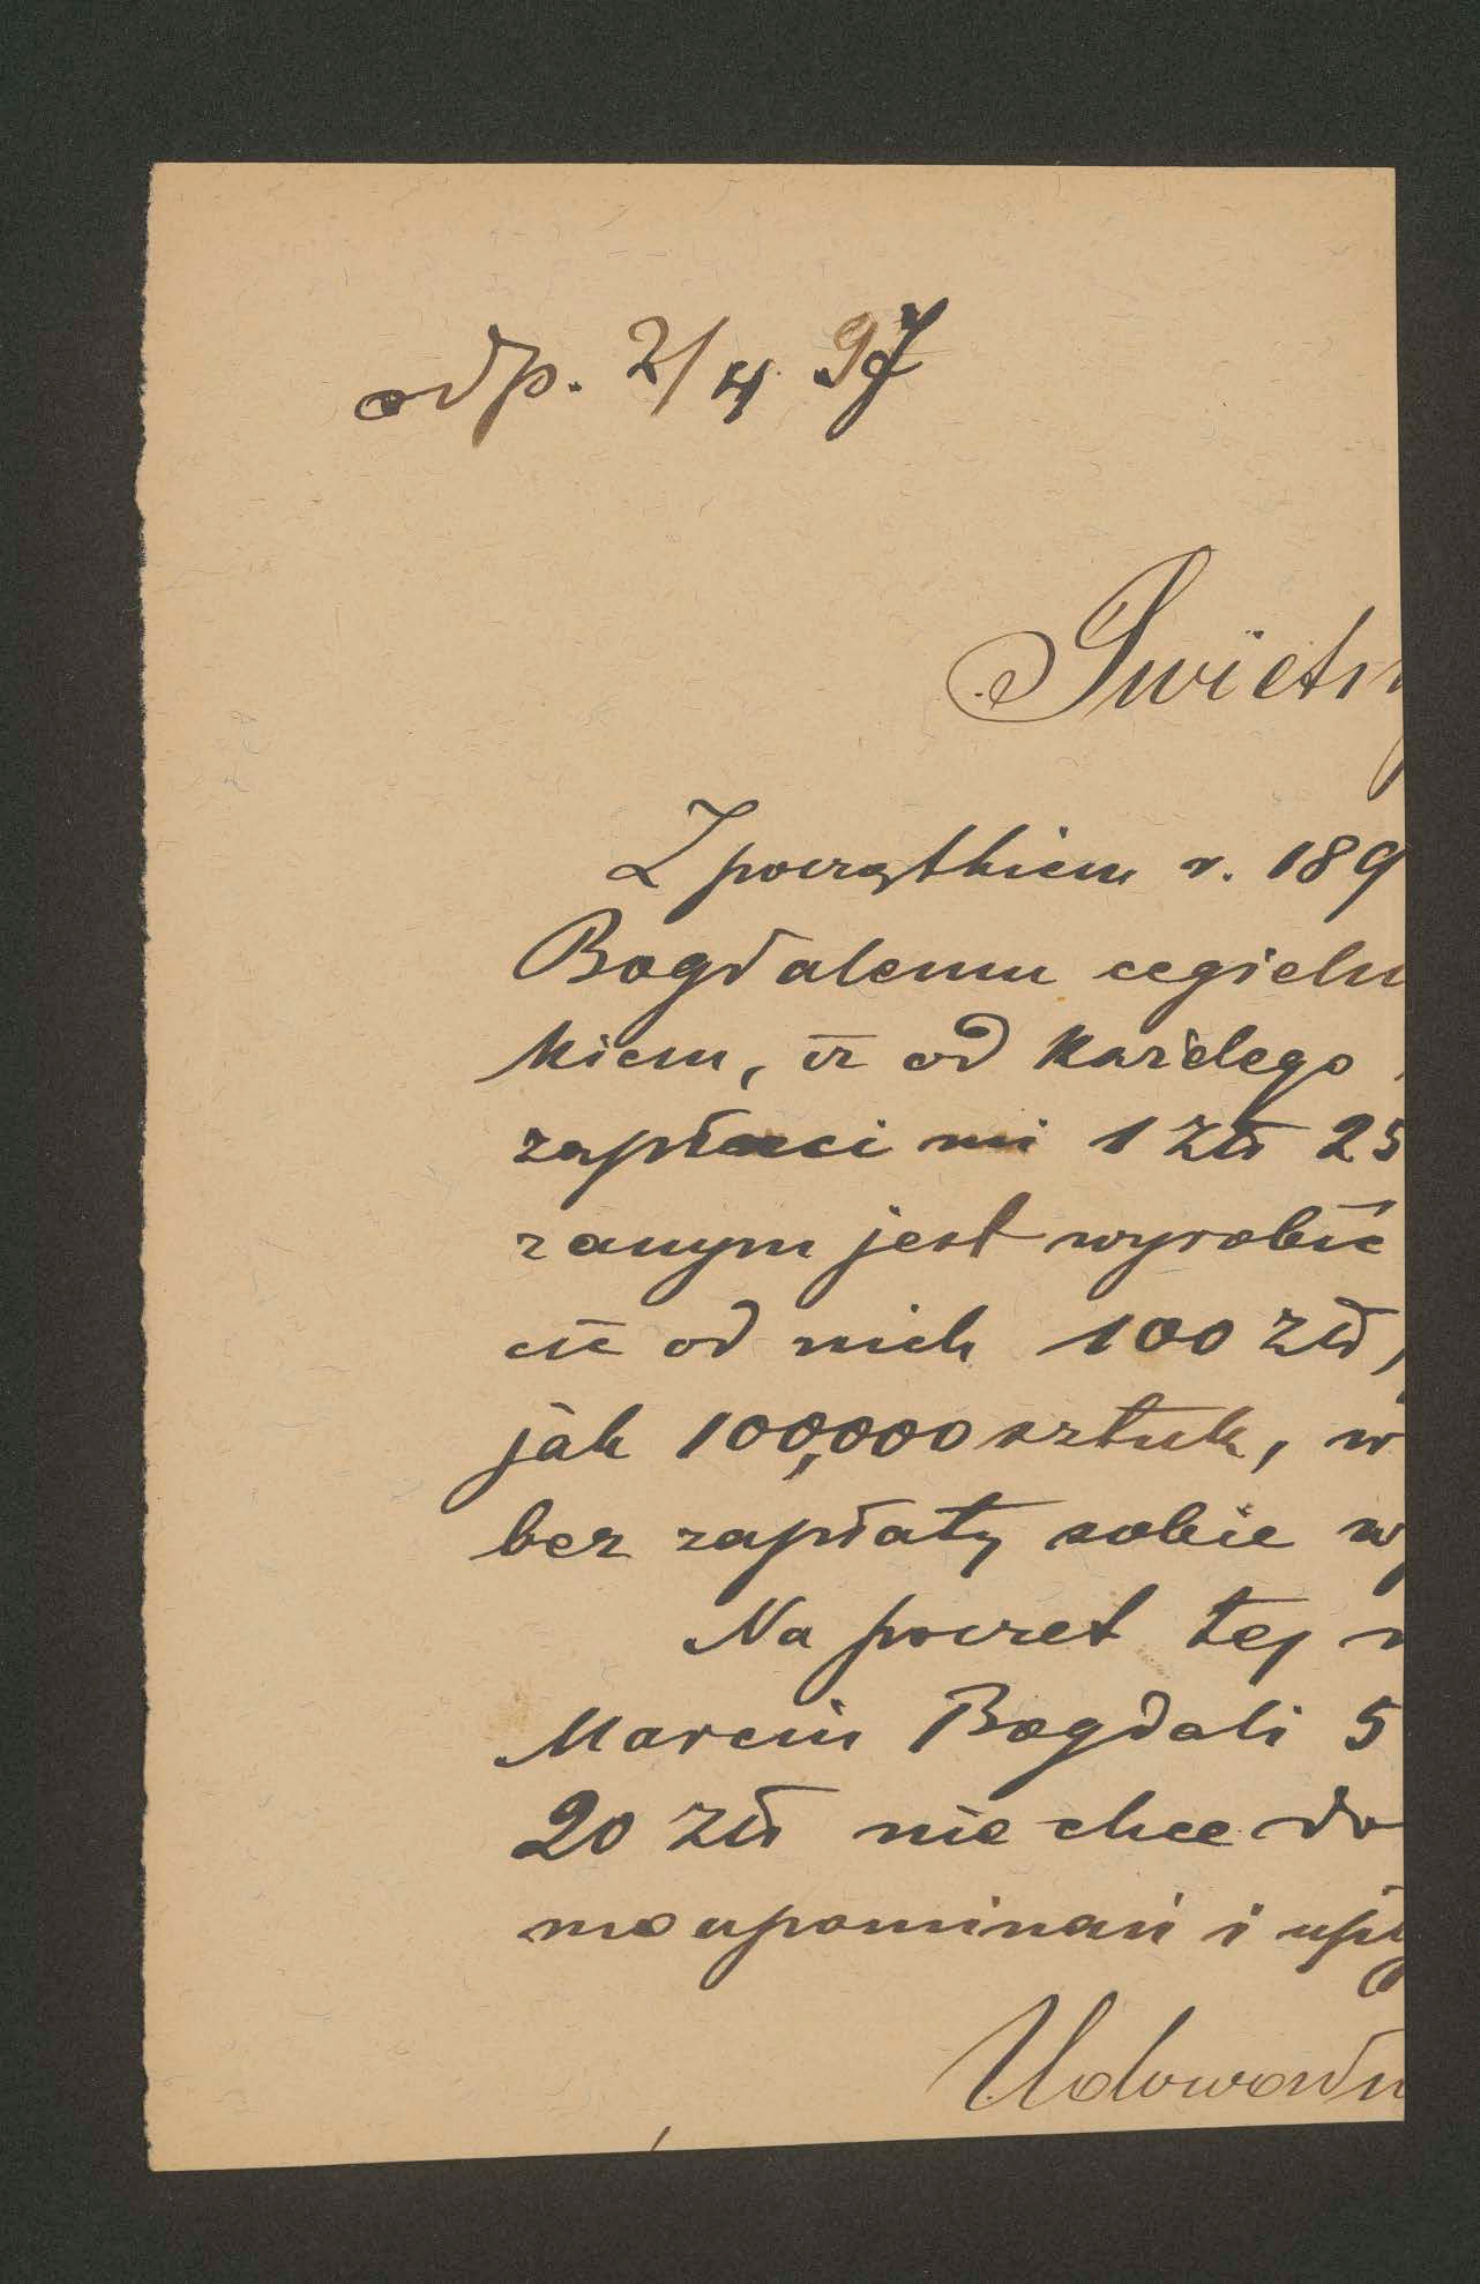 odp. 2/4 97
Świetn
Z początkiem r. 189
Bogdalemu cegieln
kiem, iż od każdego
zapłaci mi 1 zła 25
zanym jest wyrobić
cić od nich 100 zła,
jak 100,000 sztuk, w
bez zapłaty sobie wy
Na poczet tej
Marcin Bogdali 5
20 zła nie chce do
mo upominań i upł
Udowodn